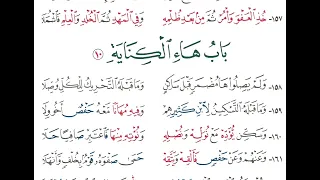 ١٥٧- خُذِ الْعَفْوَ وَأْمُرْ ثُمَّ مِنْ بَعْدِ ظُلْمِهِ وَفِي الْمَهْدِ ثُمَّ الْخُلْدِ وَالْعِلْمِ
بَابُ هَاءِ الْكِنَايَةِ
١٠
١٥٨- وَلَمْ يَصِلُوا هَا مُضْمَرٍ قَبْلَ سَاكِنٍ وَمَا قَبْلَهُ التَّحْرِيكُ لِلْكُلِّ وُصِّلَا
١٥٩- وَمَا قَبْلَهُ التَّسْكِينُ لِابْنِ كَثِيرِهِمْ وَفِيهِ مُهَانًا مَعْهُ حَفْصٌ أَخُو وِلَا
١٦٠- وَسَكِّنْ يُؤَدِّهْ مَعْ نُوَلِّهْ وَنُصْلِهِ وَنُؤْتِهِ مِنْهَا فَاعْتَبِرْ صَافِيًا حَلَا
١٦١- وَعَنْهُمْ وَعَنْ حَفْصٍ فَأَلْقِهْ وَيَتَّقِهْ حَمَى صَفْوَهُ قَوْمٌ بِخُلْفٍ وَأَنْهَلَا